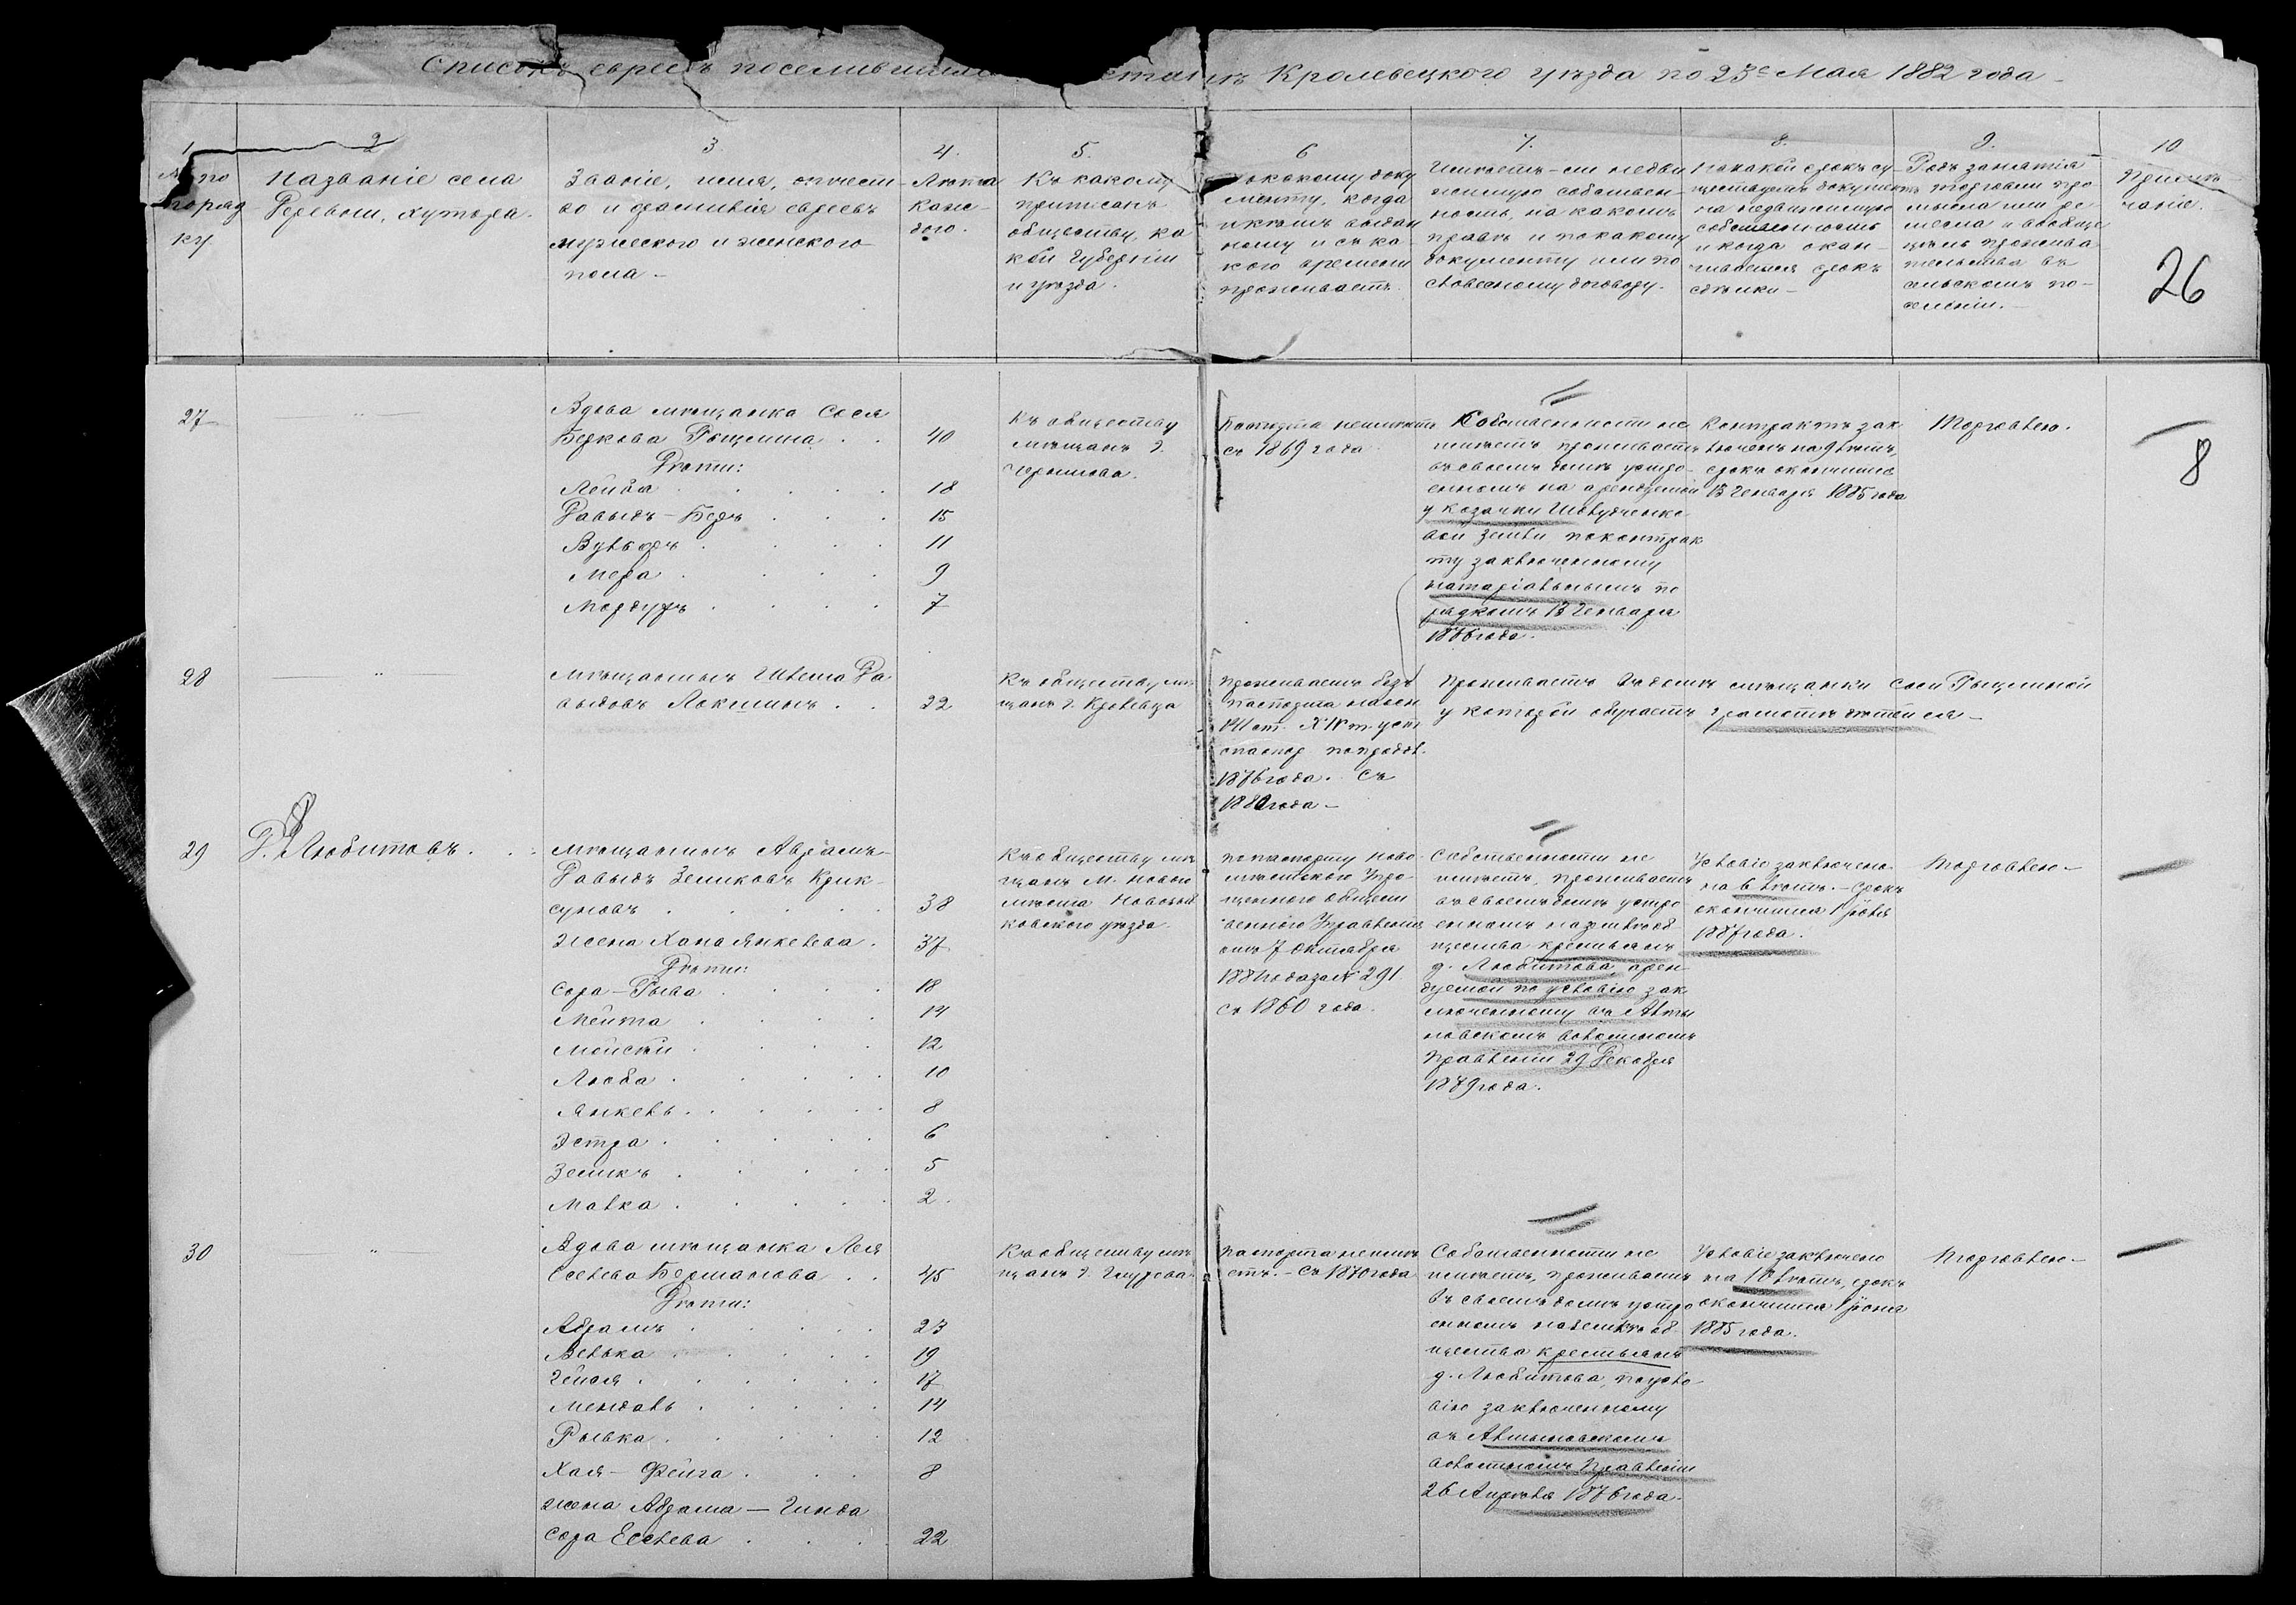 Списокъ евреевъ поселившихся Кролевецкого уѣзда по 23е Мая 1882 года
1
№ по
поряд
ку
2
Названіе села
деревни, хутора.
3.
Званіе, имя, отчест-
во и фамилія евреевъ
мужескаго и женскаго
пола
4.
Лѣта
каж-
дого.
5.
Къ какому
приписанъ
обществу, ка
кой Губерніи
и уѣзда.
6
По какому доку
менту, когда
и кѣмъ выдан
ному и съ ка
кого времени
проживаетъ
7.
Имѣетъ-ли недви
жимую собствен-
ность, на какомъ
правѣ и по какому
документу или по
словесному договору.
8.
На какой срокъ су
ществуетъ документъ
на недвижимую
собственность
и когда окан-
чивается срокъ
сдѣлки
9.
Родъ занятія
торговли про-
мысла или ре-
месла и вообще
цѣль прожива
тельства въ
сельскомъ по-
селеніи.
10
Примѣ-
чаніе.
26
27
Вдова мѣщанка Сося
Беркова Рыцлина
40
Дѣти:
Лейба 18
Давыдъ-Беръ 15
Вульфъ 11
Мера 9
Мордухъ 7
Къ обществу
мѣщанъ г.
Чернигова.
Паспорта неимѣетъ
съ 1869 года
Собственности не
имѣетъ проживаетъ
въ своемъ домѣ устро-
енномъ на арендуемой
у козачки Шовудченко
вой земли по контрак
ту заключенному
нотаріальнымъ по
рядкомъ 13 Генваря
1876 года.
Контрактъ зак
люченъ на 9 лѣтъ,
срокъ окончится
13 Генваря 1885 года
Торговлею.
8
28
Мѣщанинъ Шлема Да
выдовъ Локшинъ
22
Къ обществу мѣ
щанъ г. Кролевца
Проживаетъ безъ
паспорта на осн
ст. XIV т. уст
о паспор по продол.
1876 года. Съ
1880 года
Проживаетъ въ домѣ мѣщанки Соси Рыцлиной
у которой обучаетъ грамотѣ дѣтей ея
29
Д. Любитовъ
Мѣщанинъ Авраамъ-
Давыдъ Зеликовъ Крик-
суновъ 38
жена Хана Янкелева 37
Дѣти:
Сора-Рыва 18
Мейта 14
Мойсей 12
Люба 10
Янкель 8
Эстра 6
Зеликъ 5
Малка 2
Къ обществу мѣ
щанъ М. Новаго
мѣста Новозыб
ковскаго уѣзда
по паспорту Ново
мѣстскаго Упро-
щеннаго общест
веннаго Управленія
отъ 7 Октября
1881 года за № 291
съ 1860 года
Собственности не
имѣетъ, проживаетъ
въ своемъ домѣ устро
енномъ на землѣ об
щества крестьянъ
д. Любитова, арен-
дуемой по условію зак
люченному въ Алты
новскомъ волостномъ
Правленіи 29 Декабря
1879 года.
Условіе заключено
на 6 лѣтъ. – срокъ
окончится 1 Іюля
1887 года.
Торговлею
30
Вдова мѣщанка Лея
Еселева Берманова 45
Дѣти:
Абрамъ 23
Велька 19
17
Мендель 14
Рывка 12
Хая-Фейга 8
жена Абрама – Гинда
Сора Еселева 22
Къ обществу мѣ
щанъ г. Глухова
паспорта неимѣ
етъ. – Съ 1870 года
Собственности не
имѣетъ, проживаетъ
въ своемъ домѣ устро
енномъ на землѣ об
щества крестьянъ
д. Любитова, по усло
вію заключенному
въ Алтыновскомъ
волостномъ Правленіи
26 Апрѣля 1876 года.
Условіе заключено
на 10 лѣтъ, срокъ
окончится 1 Іюня
1885 года.
Торговлею